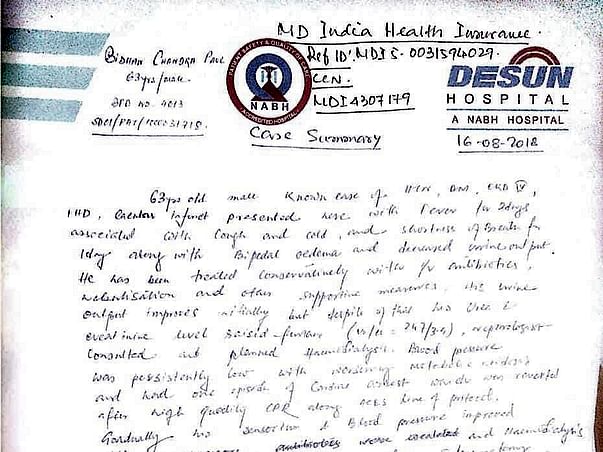 MD India Health Insurance
BIDHAN CHANDRA PAUL
63yrs/male
Ref ID: MDI5-0031594029
CCN
MDI4307179
PATIENT SAFETY & QUALITY OF CARE
NABH
ACCREDITED HOSPITAL
DESUN
HOSPITAL
A NABH HOSPITAL
16-08-2018
Case Summary
63yrs old male known case of HTN, DM, CKD IV,
IHD, infarct presented here with Fever for 2days
associated with Cough and cold, and shortness of Breath for
1day along with Bipedal oedema and decreased urine output.
He has been treated conservatively with I/V antibiotics,
nebulisation and other supportive measures. His urine
output improves initially but despite of that his Urea &
creatinine level raised further (247/3.4), nephrologist
consulted and planned Haemodialysis. Blood pressure
was persistently low with worsening metabolic acidosis
and had one episode of Cardiac arrest which was reverted
after high quality CPR along ACLS line of protocol.
Gradually his sensorium & Blood pressure improved
antibiotics were escalated and Haemodialysis